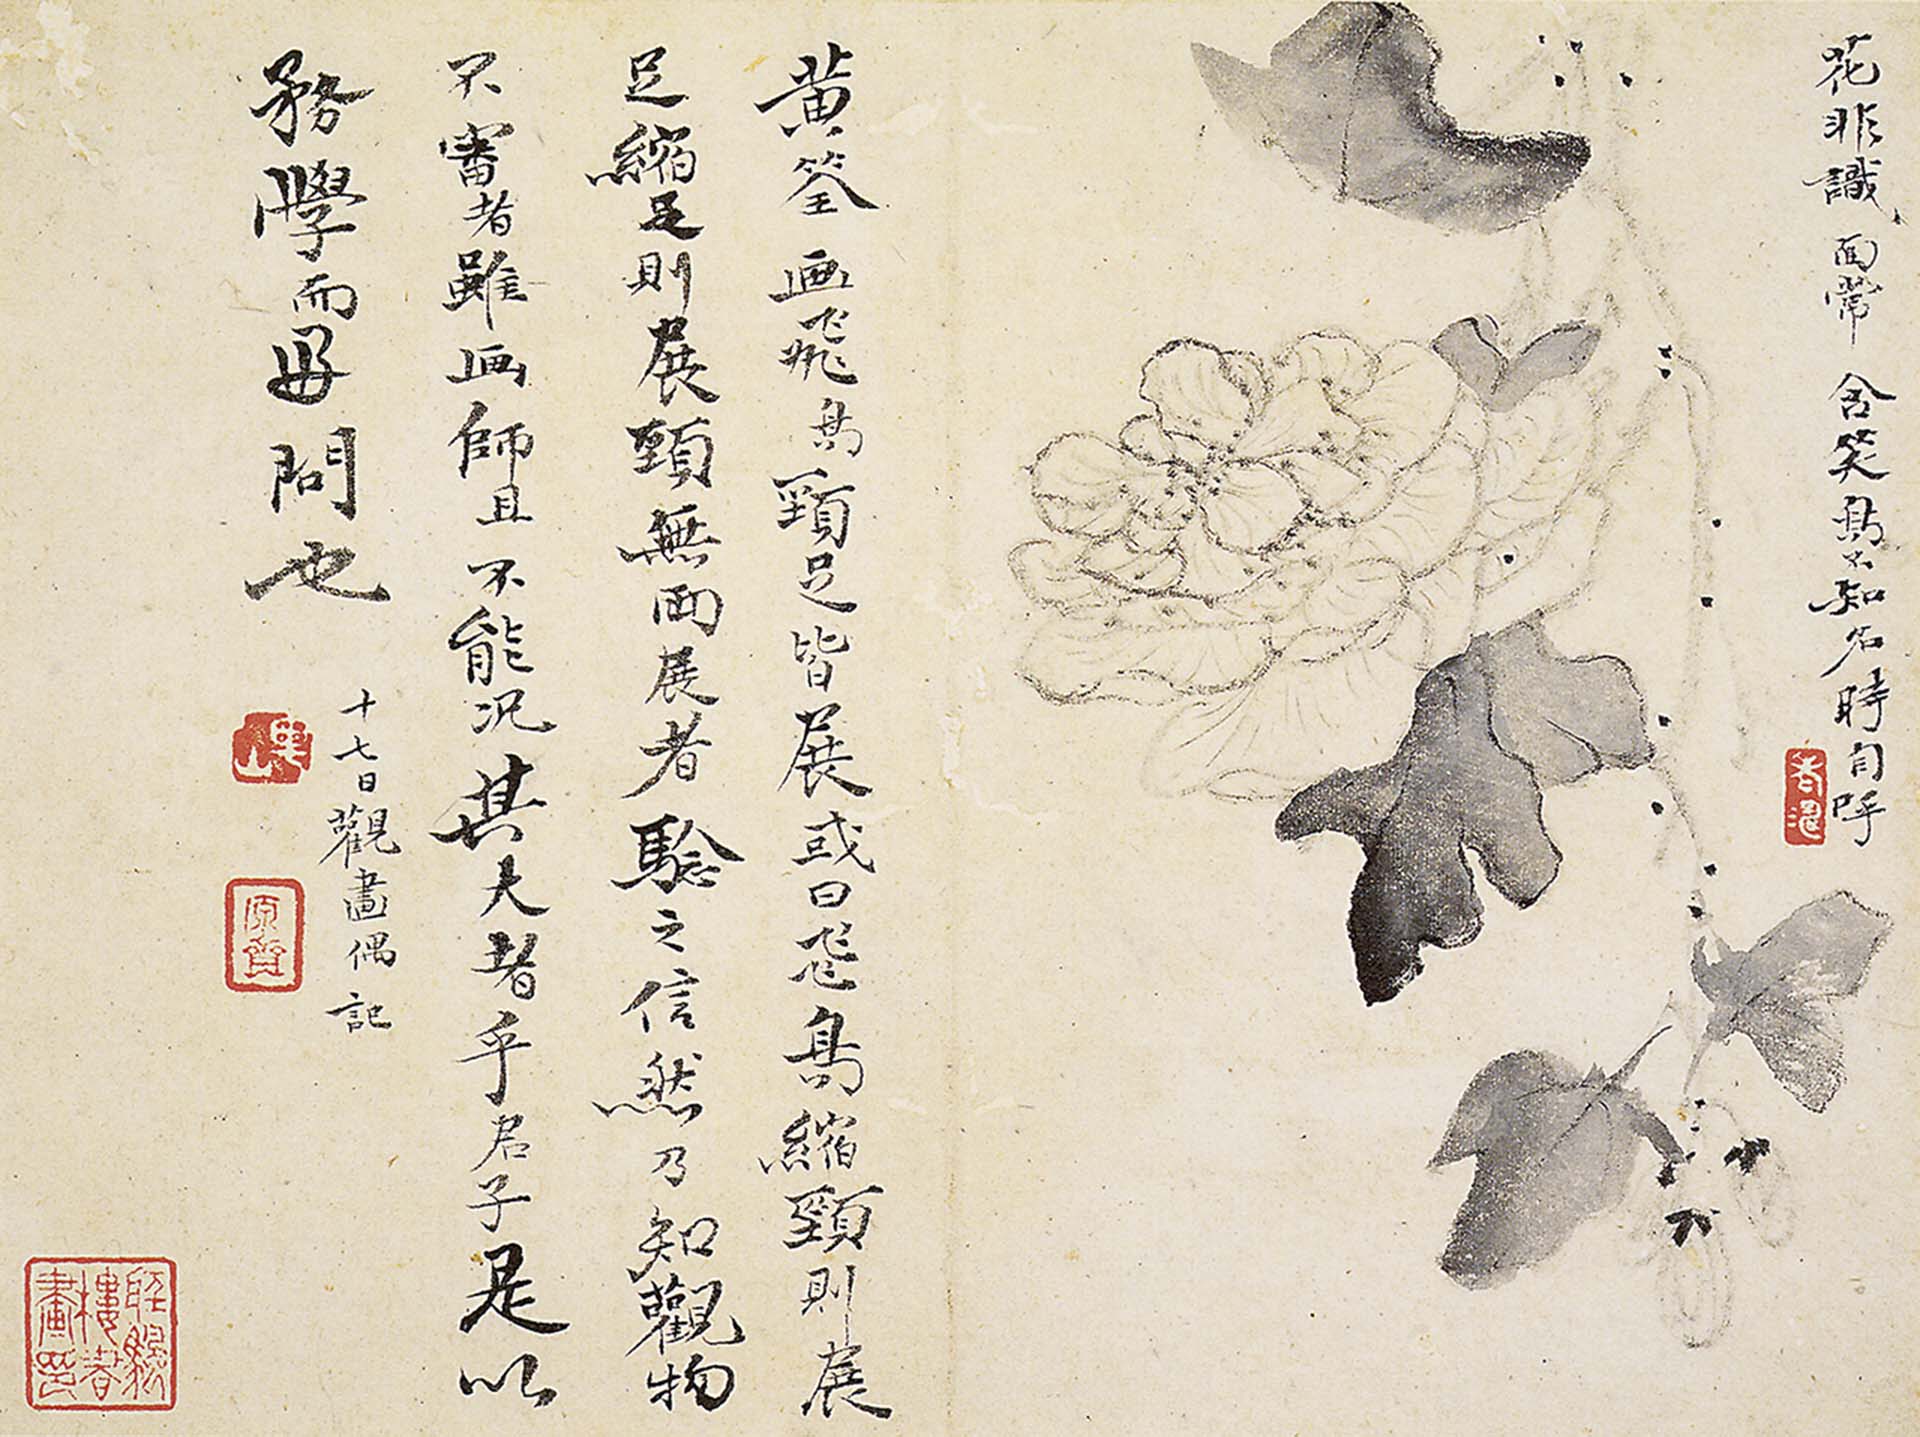 花非識面常含笑鳥不知名時自呼
黄筌画飛鳥頸足皆展或曰飛鳥縮頸則展
足縮足則展頸無兩展者驗之信然乃知觀物
不審者雖画師且不能況其大者乎君子是以
務學而毋問也
十七日觀畫偶記
原濟